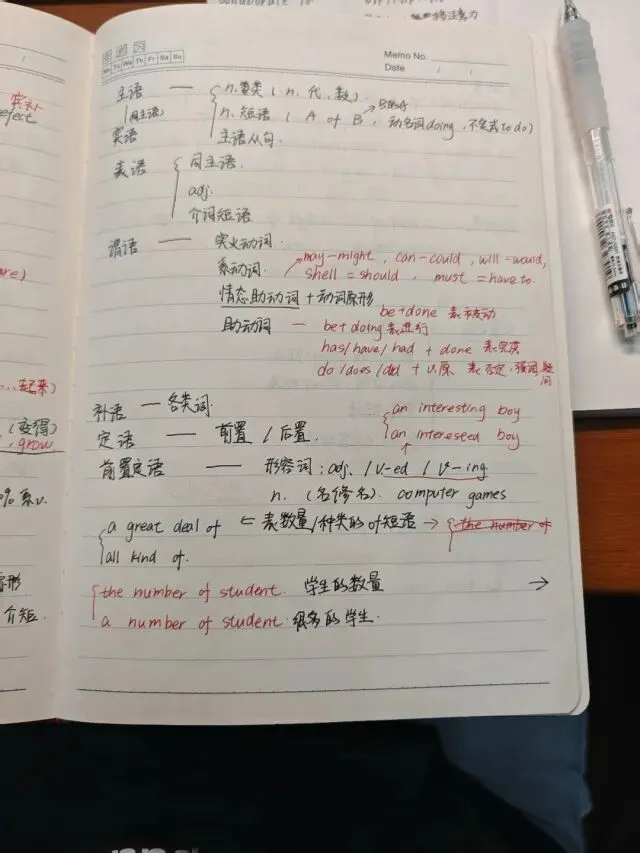 Mo Tu We Th Fr Sa Su
Memo No.
Date / /
主语 — n.类 ( n. 代. 数 ).
(同主语) n. 短语 ( A of B , 动名词doing , 不定式to do )
宾语 主语从句.
表语 同主语.
adj.
介词短语
谓语 — 实义动词.
系动词. may-might , can-could , will=would,
shell = should , must = have to.
情态助动词 + 动词原形
be+done 表被动
助动词 — be+doing 表进行
has/have/had + done 表完成
do/does/did + v.原 表否定.强调.疑问
补语 — 各类词. an interesting boy
定语 — 前置 / 后置. an intereseed boy
前置定语 — 形容词: adj. / v-ed / v-ing.
n. (名修名). computer games
a great deal of ⇐ 表数量/种类的of短语 → the number of
all kind of.
the number of student. 学生的数量 →
a number of student 很多的学生.
宾补
efect
re)
起来)
(变得)
, grow.
% 系v.
形
介短.
注意力